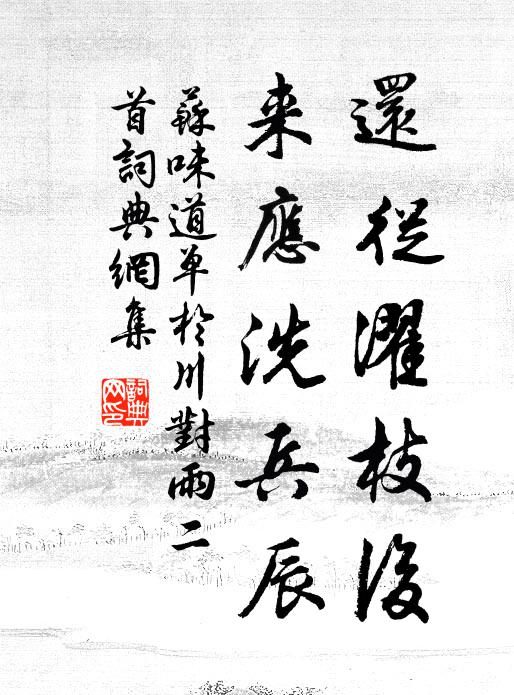 還從濯枝後
来應洗兵辰
蘇味道单於川對雨二
首詞典網集
詞典網印